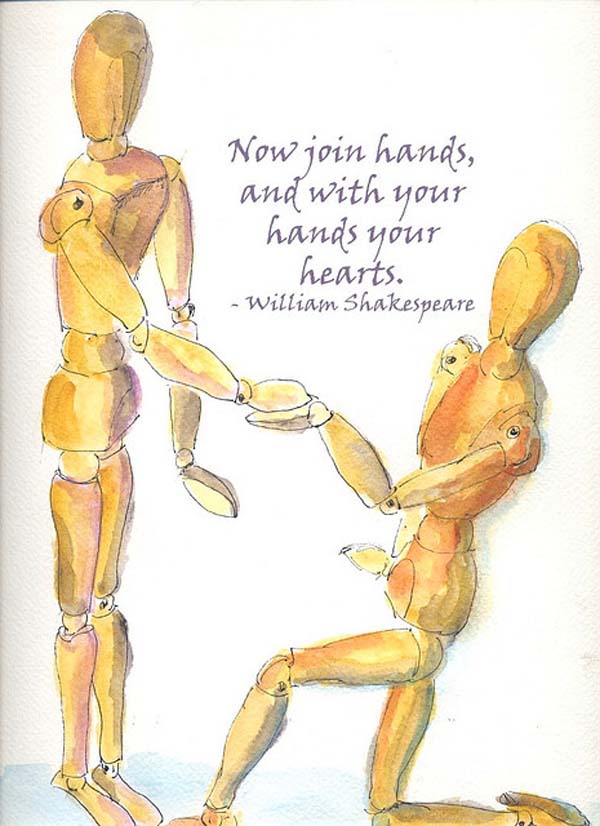 Now join hands,
and with your
hands your
hearts.
- William Shakespeare